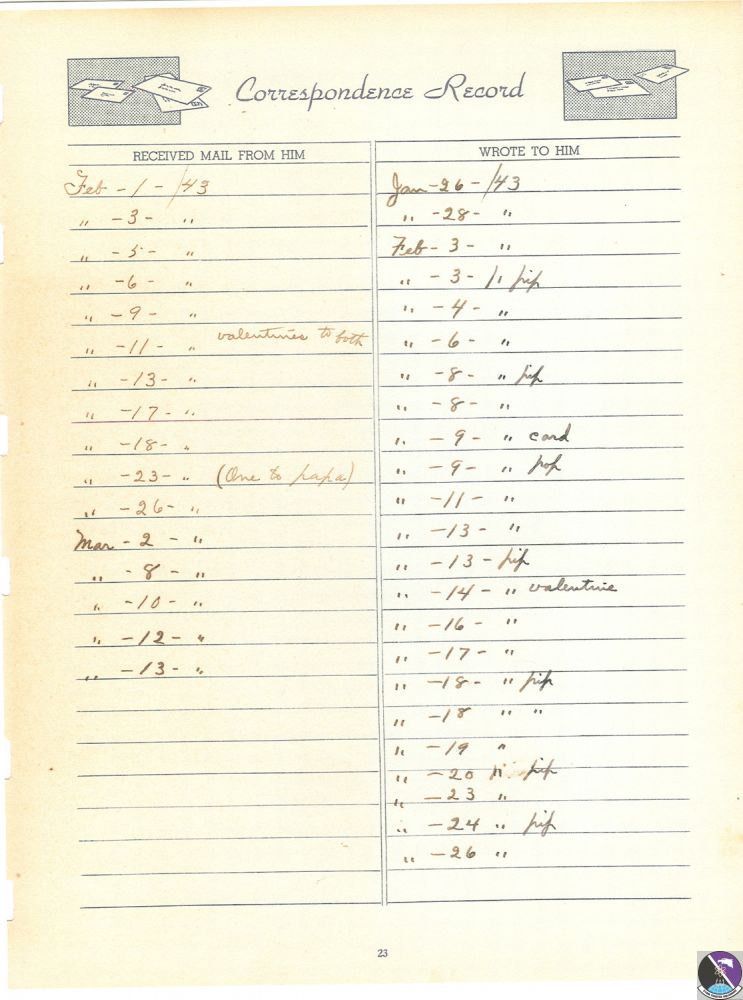 Correspondence Record
RECEIVED MAIL FROM HIM
Feb - 1 - /43
" - 3 - "
" - 5 - "
" - 6 - "
" - 9 - "
" - 11 - " valentines to both
" - 13 - "
" - 17 - "
" - 18 - "
" - 23 - " (One to papa)
" - 26 - "
Mar - 2 - "
" - 8 - "
" - 10 - "
" - 12 - "
" - 13 - "
WROTE TO HIM
Jan - 26 - /43
" - 28 - "
Feb - 3 - "
" - 3 - " pip
" - 4 - "
" - 6 - "
" - 8 - " pip
" - 8 - "
" - 9 - " card
" - 9 - " pop
" - 11 - "
" - 13 - "
" - 13 - pip
" - 14 - " valentine
" - 16 - "
" - 17 - "
" - 18 - " pip
" - 18 " "
" - 19 "
" - 20 " pip
" - 23 "
" - 24 " pip
" - 26 "
23